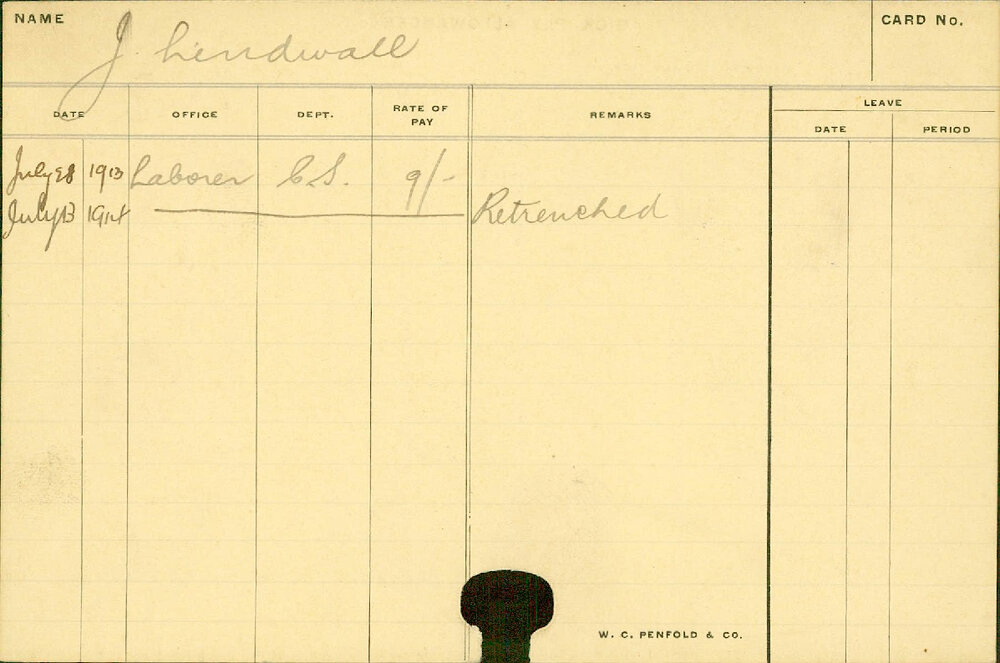 NAME J. Lindwall CARD No.
DATE OFFICE DEPT. RATE OF PAY REMARKS LEAVE
DATE PERIOD
July 28 1913 Laborer C.S. 9/-
July 13 1914 Retrenched
W. C. PENFOLD & CO.